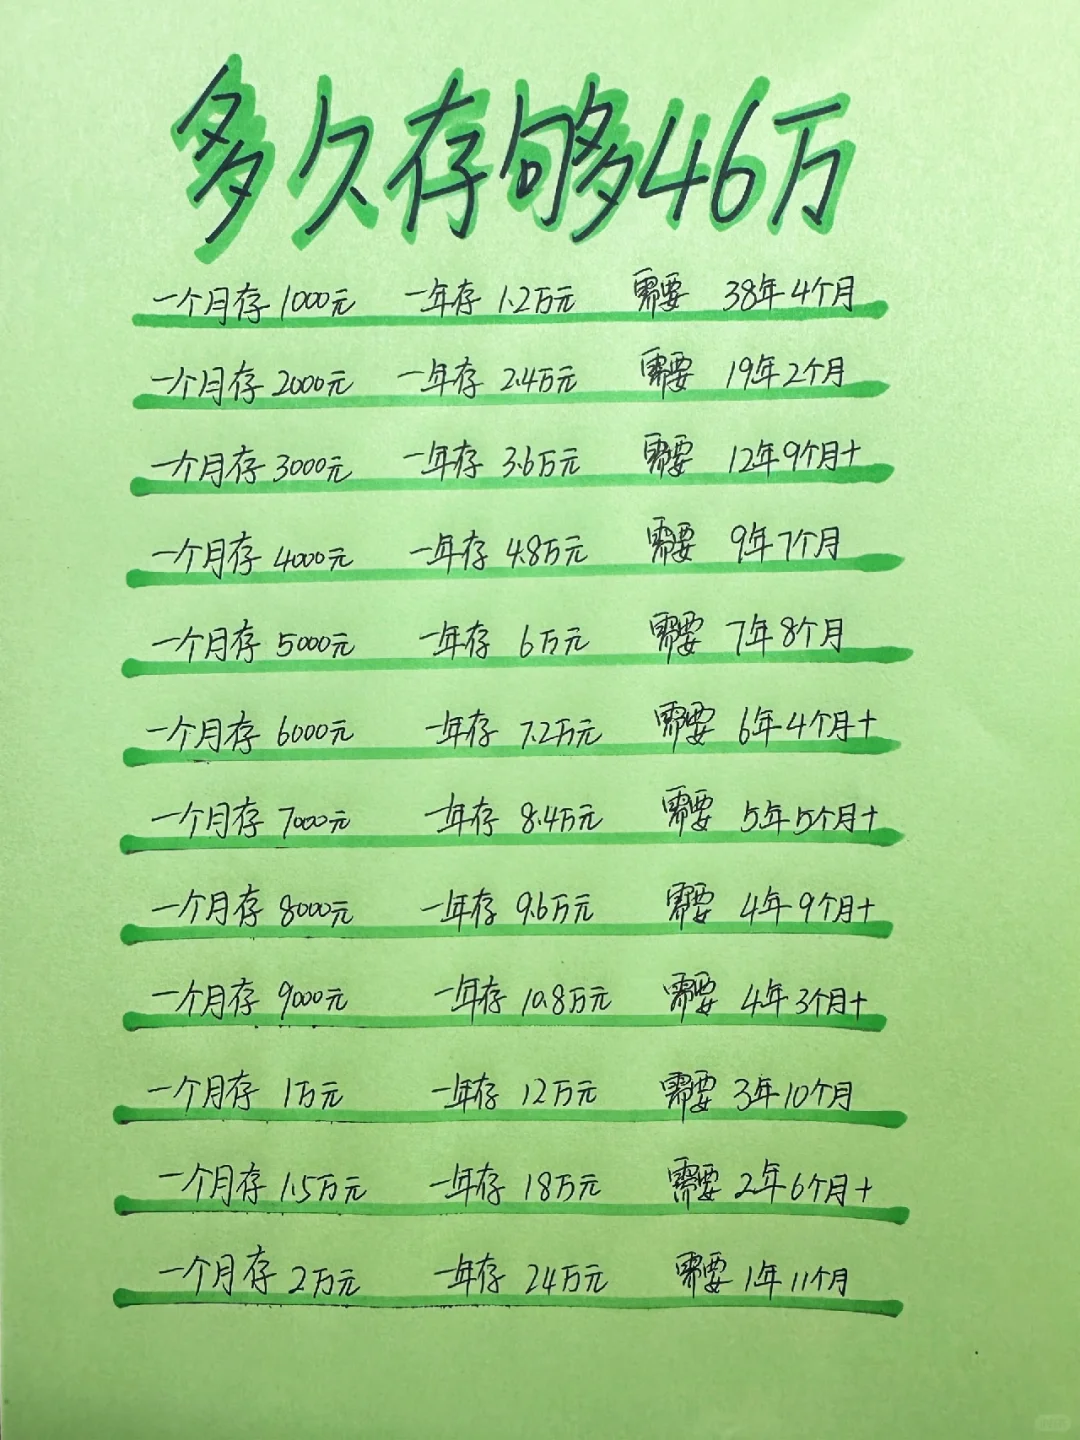 多久存够46万
一个月存1000元 一年存1.2万元 需要 38年4个月
一个月存2000元 一年存2.4万元 需要 19年2个月
一个月存3000元 一年存3.6万元 需要 12年9个月+
一个月存4000元 一年存4.8万元 需要 9年7个月
一个月存5000元 一年存6万元 需要 7年8个月
一个月存6000元 一年存7.2万元 需要 6年4个月+
一个月存7000元 一年存8.4万元 需要 5年5个月+
一个月存8000元 一年存9.6万元 需要 4年9个月+
一个月存9000元 一年存10.8万元 需要 4年3个月+
一个月存1万元 一年存12万元 需要 3年10个月
一个月存1.5万元 一年存18万元 需要 2年6个月+
一个月存2万元 一年存24万元 需要 1年11个月